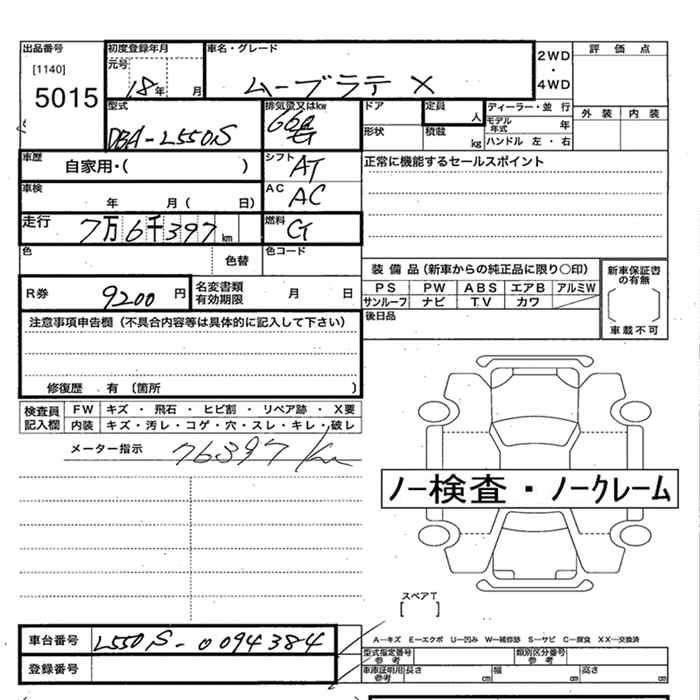 出品番号 [1140] 5015
初度登録年月 元号 18年 月
車名・グレード ムーブラテ X
2WD・4WD
評価点
外装 内装
型式 DBA-L550S
排気量又はkw 660
ドア
形状
定員 人
積載 kg
ディーラー・並行
モデル年式 年
ハンドル 左・右
車歴 自家用・( )
シフト AT
正常に機能するセールスポイント
車検 年 月( 日)
AC AC
走行 7万6千397km
燃料 G
色 色替
色コード
装備品(新車からの純正品に限り○印)
PS PW ABS エアB アルミW
サンルーフ ナビ TV カワ
新車保証書の有無
車載不可
R券 9200円
名変書類有効期限 月 日
後日品
注意事項申告欄(不具合内容等は具体的に記入して下さい)
修復歴 有(箇所 )
検査員記入欄
FW キズ・飛石・ヒビ割・リペア跡・X要
内装 キズ・汚レ・コゲ・穴・スレ・キレ・破レ
メーター指示 76397km
ノー検査・ノークレーム
スペアT [ ]
車台番号 L550S-0094384
登録番号
A—キズ E—エクボ U—凹み W—補修跡 S—サビ C—腐食 XX—交換済
型式指定番号 参考
類別区分番号 参考
車庫証明用 参考 長さ cm 幅 cm 高さ cm